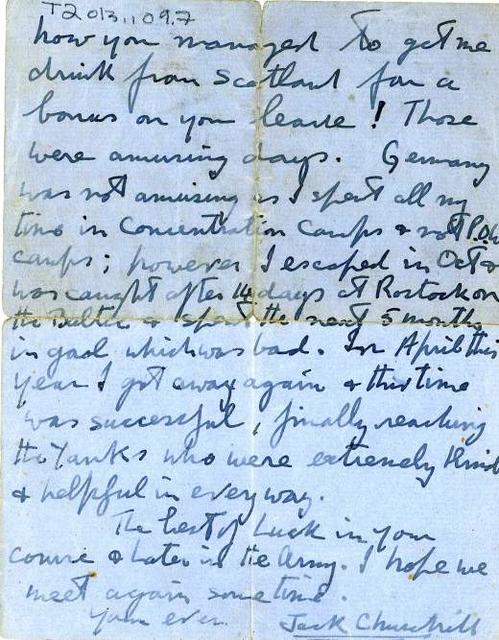 T2013.109.7
how you managed to get me
drink from Scotland for a
bonus on your leave! Those
were amusing days. Germany
was not amusing as I spent all my
time in Concentration Camps & not P.O.W
camps; however I escaped in Oct &
was caught after 14 days at Rostock on
the Baltic & spent the next 5 months
in gaol which was bad. In April this
year I got away again & this time
was successful, finally reaching
the Yanks who were extremely kind
& helpful in every way.
The best of luck in your
course & later in the Army. I hope we
meet again some time.
Yours ever
Jack Churchill